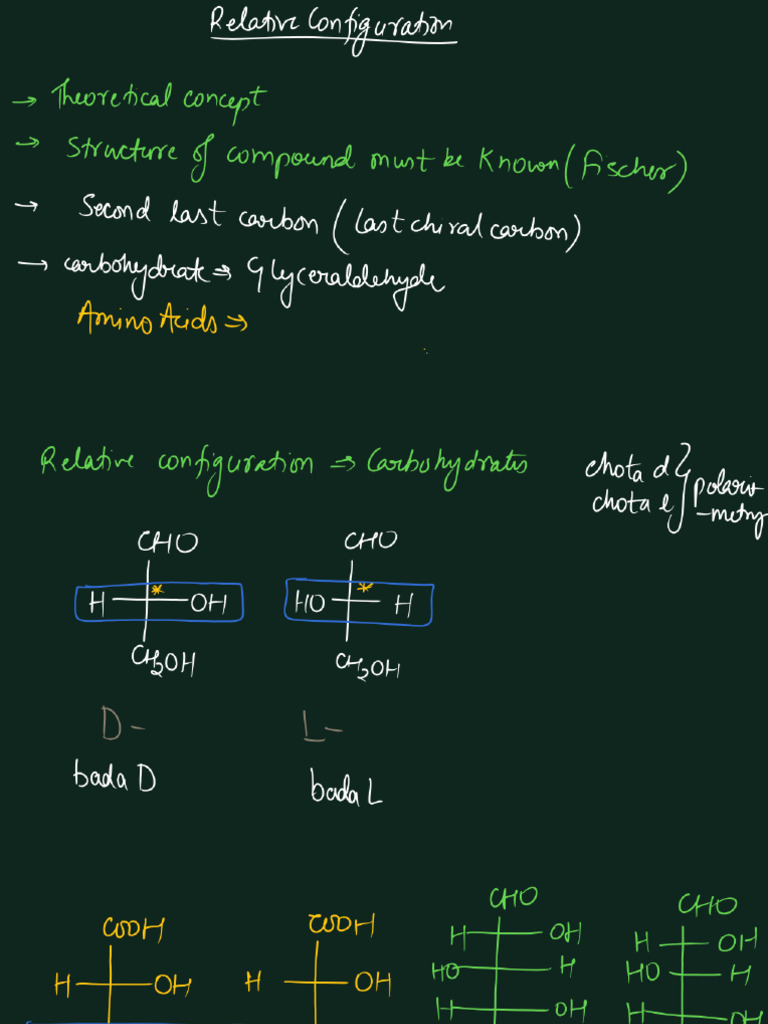 Relative Configuration
→ Theoretical concept
→ Structure of compound must be known (Fischer)
→ Second last carbon (last chiral carbon)
→ carbohydrate ⇒ Glyceraldehyde
Amino Acids ⇒
Relative configuration ⇒ Carbohydrates
chota d
chota l
} polari
-metry
CHO CHO
* *
H OH HO H
CH2OH CH2OH
D- L-
bada D bada L
CHO CHO
COOH COOH
H OH H OH
HO H HO H
H OH H OH
H OH H OH